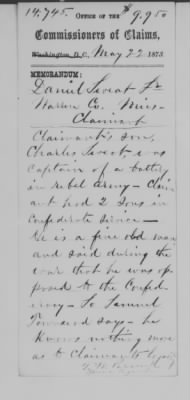 14,745. $9,950
OFFICE OF THE
Commissioners of Claims,
Washington, D.C., May 22 1873
MEMORANDUM:
Daniel Sweat Sr
Warren Co. Miss—
Claimant
Claimant's son,
Charles Sweat, was
Captain of a battery
in rebel army— Claim
ant had 2 sons in
Confederate service—
He is a fine old man
and said during the
war that he was op
posed to the Confed-
eracy— So Samuel
Townsend says— he
knows nothing more
as to Claimant's loyalty